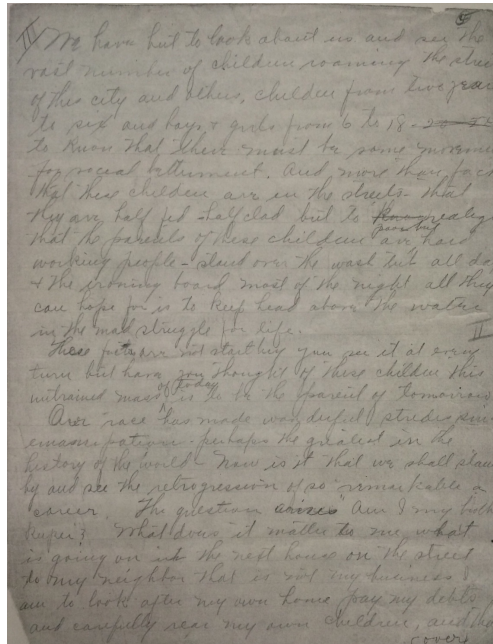 5
III We have but to look about us and see the
vast number of children roaming the stree
of this city and others, children from two year
to six and boys & girls from 6 to 18
to know that there must be some movemen
for social betterment. And more than, for
that these children are in the streets – that
they are half fed – half clad but to realize
that the parents of these children are hard
working people – stand over the wash tub all da
& the ironing board most of the night all they
can hope for is to keep head above the water
in the mad struggle for life.
II
These facts are not startling you see it at every
turn but have you thought of these children this
of today
untrained mass is to be the parent of tomorrow
Our race has made wonderful strides since
emancipation – perhaps the greatest in the
history of the world. Now is it that we shall stan
by and see the retrogression of so remarkable a
career. The question arises "Am I my broth
keper? What does it matter to me what
is going on in the next house on the street
to my neighbor that is not my business I
am to look after my own home pay my debts
and carefully rear my own children, and the
(over)